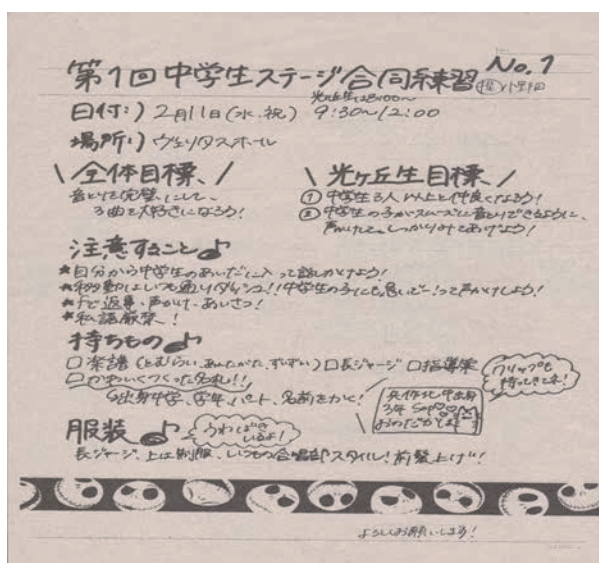 No.1
第1回中学生ステージ合同練習
光ヶ丘生は8:00〜
日付:) 2月11日(水、祝) 9:30〜12:00
場所:) ヴェリタスホール
\ 全体目標、/
音とりを完璧にして、
3曲を大好きになろう!
\ 光ヶ丘生目標、/
① 中学生3人以上と仲良くなろう!
② 中学生の子がスムーズに音とりできるように、
声かけして、しっかりみてあげよう!
注意すること♪
★自分から中学生のあいだに入って話しかけよう!
★移動はいつも通りダッシュ!!中学生の子にも急いでー!って声かけしよう!
★fで返事・声かけ・あいさつ!
★私語厳禁、!
持ちもの♪
□楽譜(とむらい、あんたがた、ずいずい) □長ジャージ □指導案
□かわいくつくった名札!!
クリップも
持ってきてネ!
出身中学、学年、パート、名前をかく!
3年 Sop♡♡
服装♪
うわばき
いるよ!
長ジャージ、上は制服、いつもの合唱部スタイル!前髪上げ!!
よろしくお願いします!